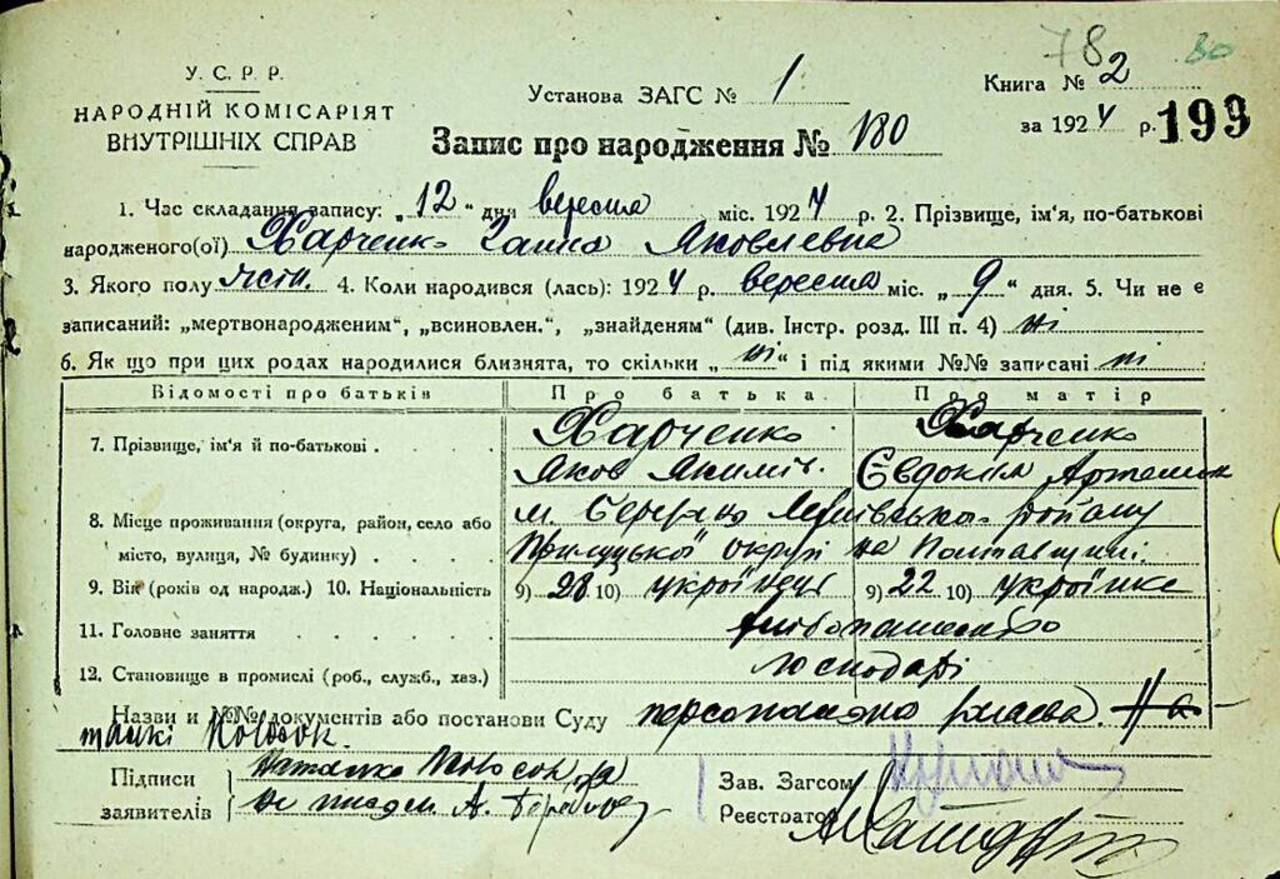 78 2 80
У. С. Р. Р.
НАРОДНІЙ КОМІСАРІЯТ
ВНУТРІШНІХ СПРАВ
Установа ЗАГС № 1
Книга № 2
за 1924 р. 199
Запис про народження № 180
1. Час складання запису: „12" дня вересня міс. 1924 р. 2. Прізвище, ім'я, по-батькові
народженого(ої) Харченко Ганна Яковлевна
3. Якого полу 4. Коли народився (лась): 1924 р. вересня міс. „9" дня. 5. Чи не є
записаний: „мертвонародженим", „всиновлен.", „знайденям" (див. Інстр. розд. III п. 4) ні
6. Як що при цих родах народилися близнята, то скільки „ні" і під якими №№ записані ні
Відомості про батьків Про батька. Про матір
7. Прізвище, ім'я й по-батькові . . . . Харченко Харченко
Яков Якимів. Євдокія
8. Місце проживання (округа, район, село або м. району
місто, вулиця, № будинку) . . . . Прилуцької округи на Полтавщині.
9. Вік (років од народж.) 10. Національність 9) 28 10) українець 9) 22 10) українка
11. Головне заняття . . . . . . хлібопашество
12. Становище в промислі (роб., служб., хаз.) господарі
Назви и №№ документів або постанови Суду персональна
Підписи Наталка
заявителів А.
Зав. Загсом
Реєстратор